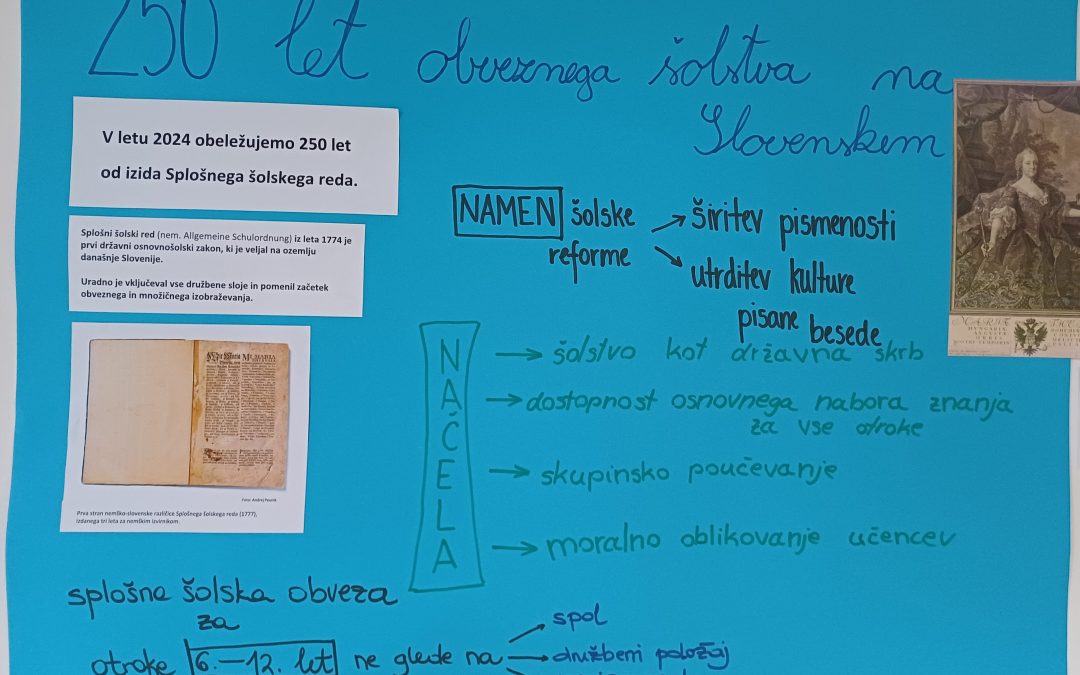 250 let obveznega šolstva na
Slovenskem
V letu 2024 obeležujemo 250 let
od izida Splošnega šolskega reda.
Splošni šolski red (nem. Allgemeine Schulordnung) iz leta 1774 je
prvi državni osnovnošolski zakon, ki je veljal na ozemlju
današnje Slovenije.
Uradno je vključeval vse družbene sloje in pomenil začetek
obveznega in množičnega izobraževanja.
Foto: Andrej Peunik
Prva stran nemško-slovenske različice Splošnega šolskega reda (1777),
izdanega tri leta za nemškim izvirnikom.
NAMEN šolske
reforme
→ širitev pismenosti
→ utrditev kulture
pisane besede
NAČELA
→ šolstvo kot državna skrb
→ dostopnost osnovnega nabora znanja
za vse otroke
→ skupinsko poučevanje
→ moralno oblikovanje učencev
splošna šolska obveza
za
otroke 6.–12. let ne glede na
spol
→ družbeni položaj